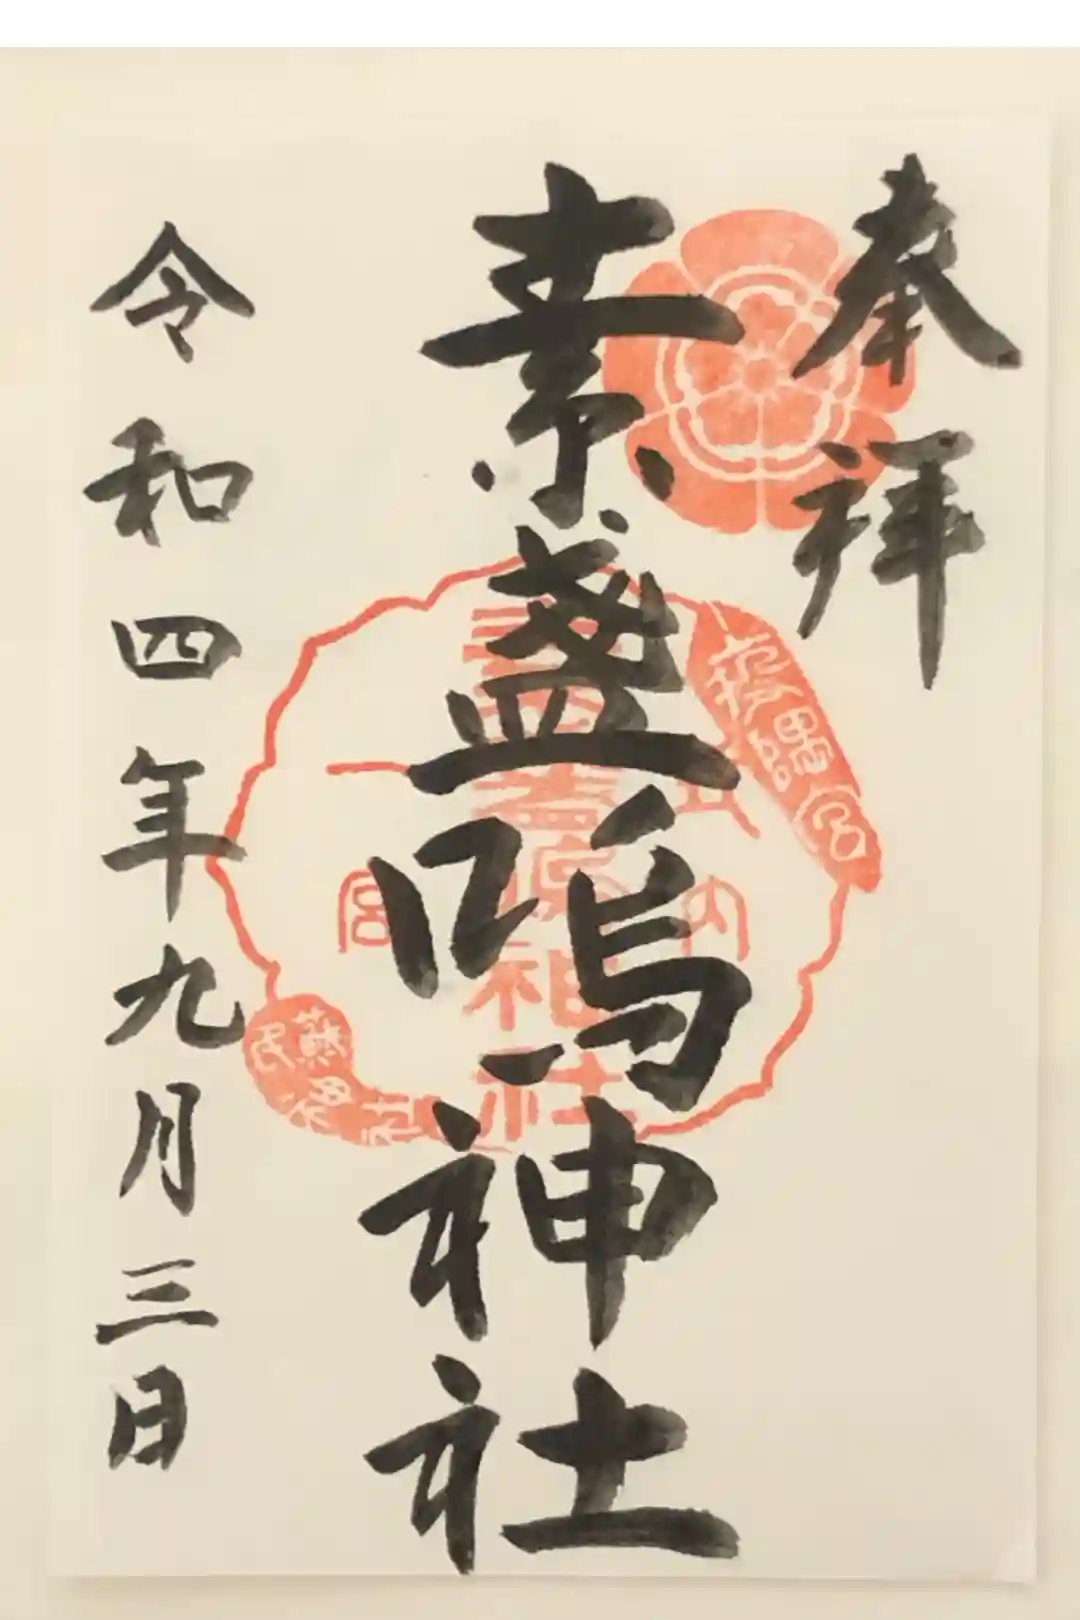 奉拝
素盞嗚神社
令和四年九月三日